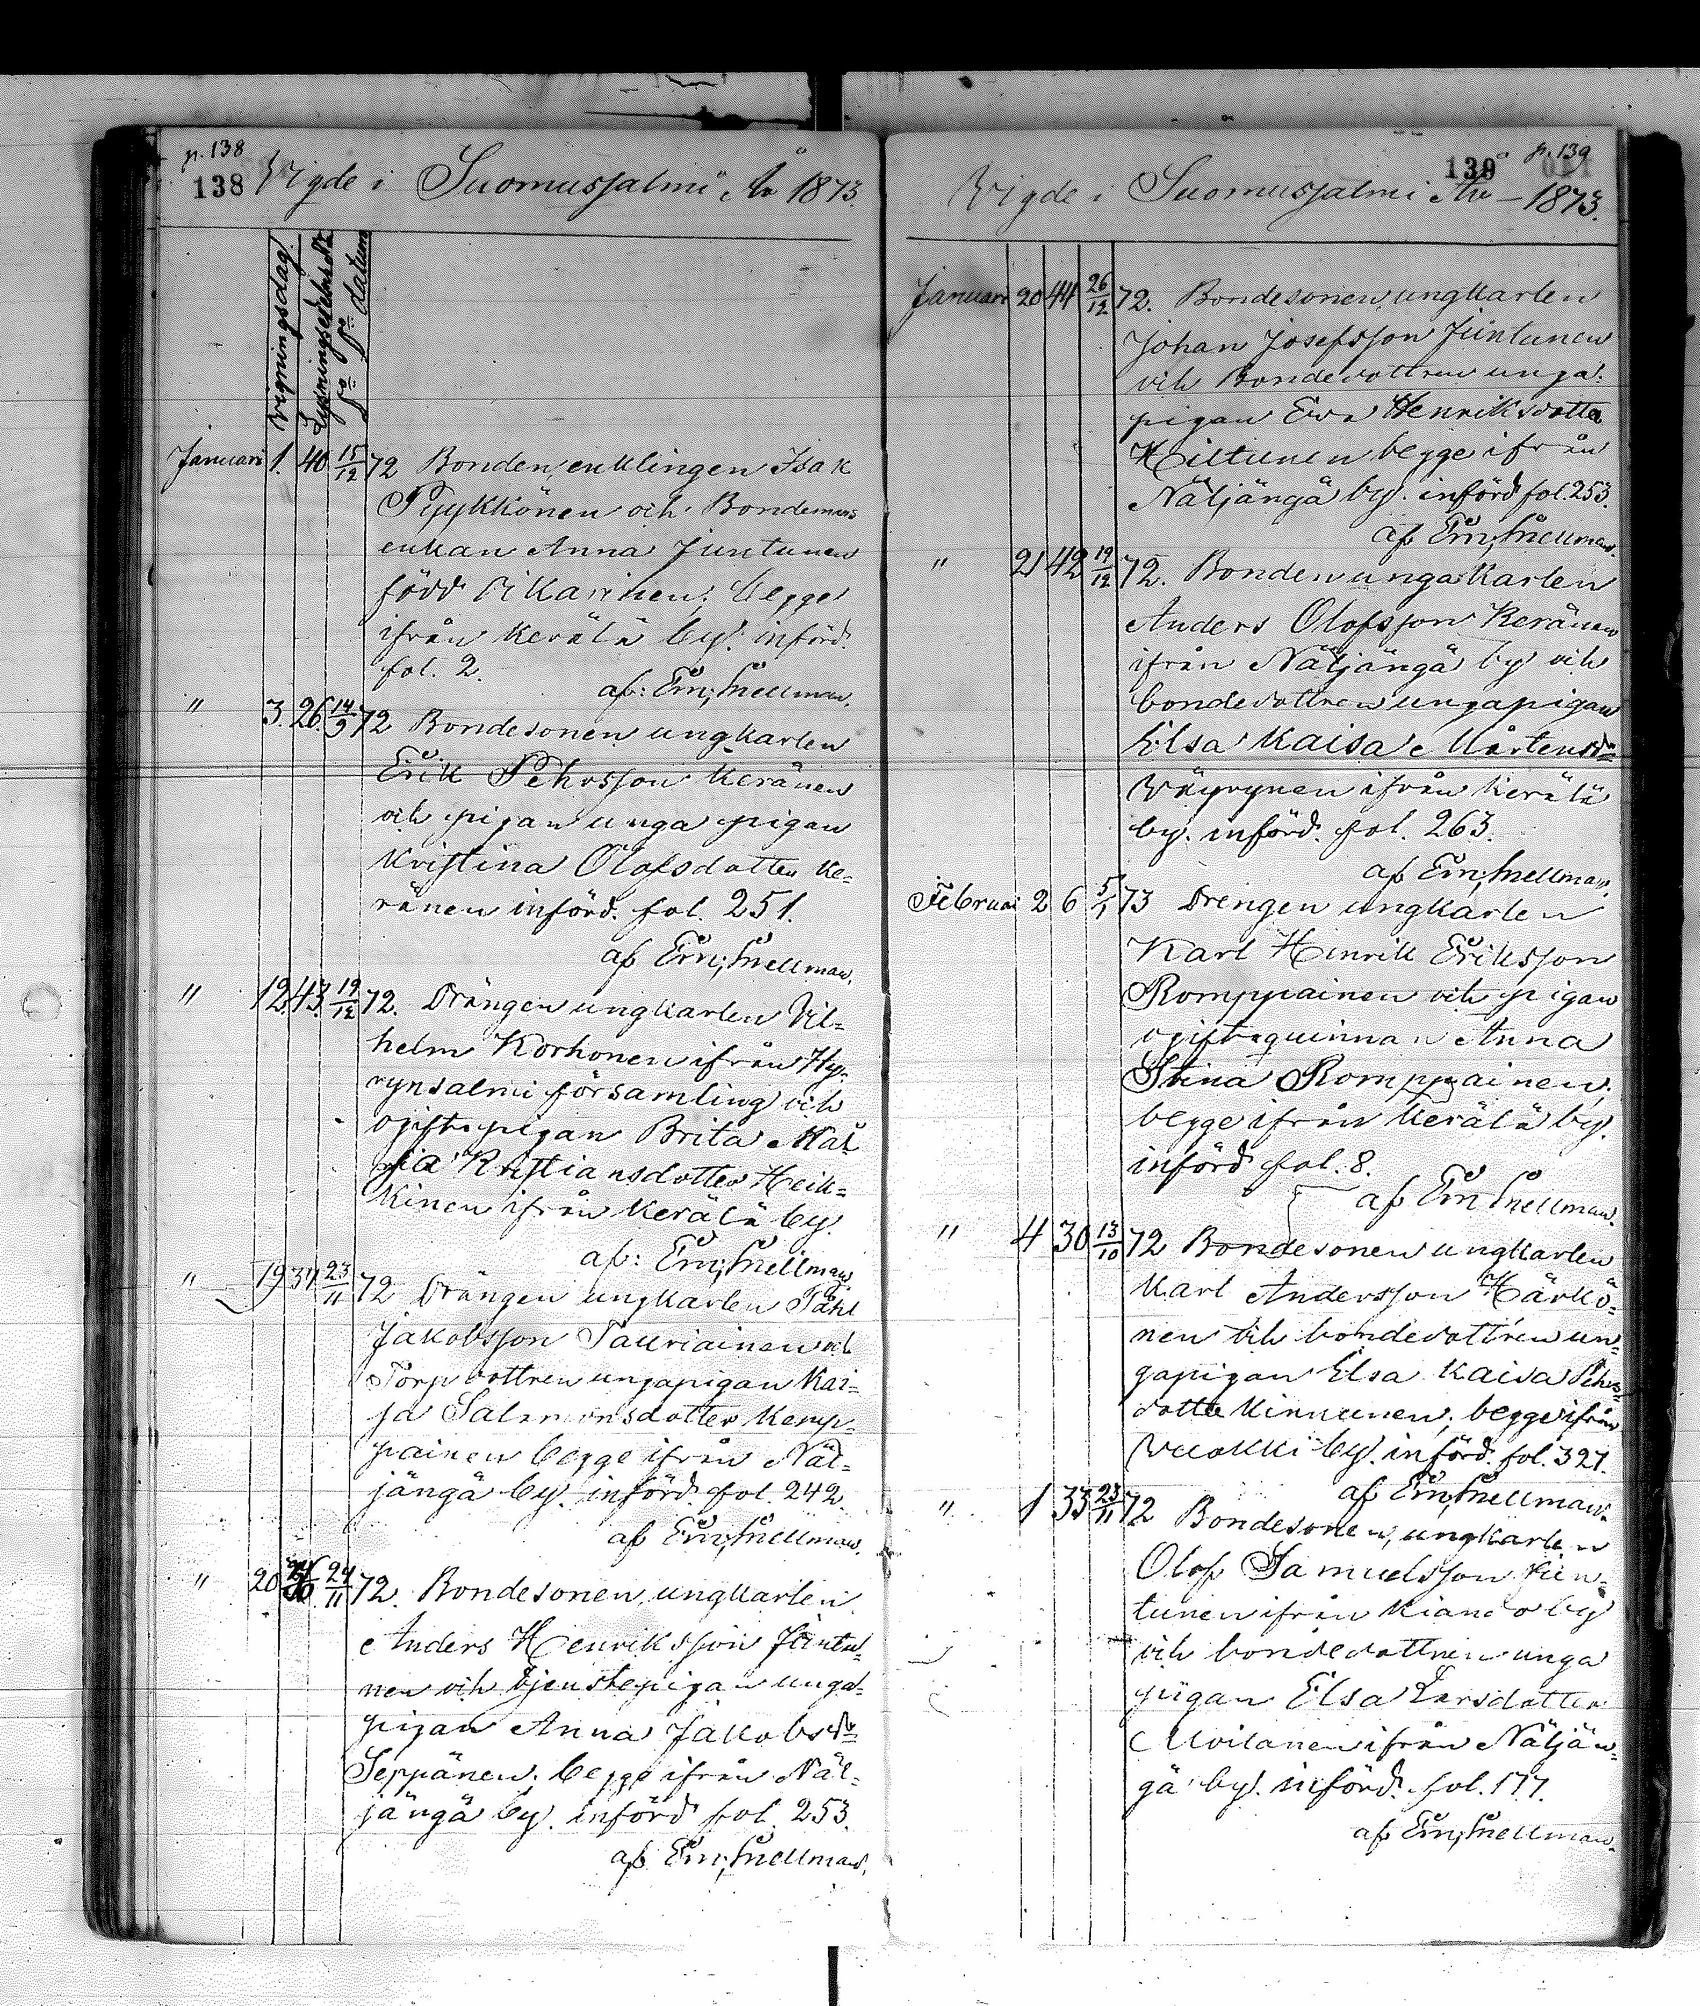 p. 138
138 Vigde i Suomussalmi År 1873.
Vigningsdag
Lysningssedelns No
Do Do datum
Januari 1. 40 15/12 72 Bonden, enklingen Isak
Pyykkönen och Bondemans
enkan Anna Juntunen
född Pikarinen; begge
ifrån Kerälä by. införd.
fol. 2.
af: Ern; Snellman.
" 3. 26. 14/9 72 Bondesonen ungkarlen
Erik Pehrsson Keränen
och pigan unga pigan
Kristina Olofsdotter Ke-
ränen införd. fol. 251.
af Ern; Snellman.
" 12. 43 19/12 72. Drängen ungkarlen Vil-
helm Korhonen ifrån Hy-
rynsalmi församling och
ogift. pigan Brita Ma-
ria Kristiansdotter Heik-
kinen ifrån Kerälä by.
af: Ern; Snellman.
" 19 37 23/11 72 Drängen ungkarlen Påhl
Jakobsson Tauriainen och
Torpdottren ungapigan Kai-
sa Salomonsdotter Kemp-
painen begge ifrån Näl-
jängä by. införd. fol. 242.
af Ern; Snellman.
" 20 24/11 72. Bondesonen, ungkarlen
Anders Henriksson Juntu-
nen och tjenstepigan unga-
pigan Anna Jakobsdr
Seppänen; begge ifrån Näl-
jängä by. införd fol. 253.
af Ern; Snellman.
p. 139
139
Vigde i Suomussalmi År - 1873.
Januari 20 44 26/12 72. Bondesonen, ungkarlen
Johan Josefsson Juntunen
och Bondedottren unga-
pigan Eva Henriksdotter
Kiltunen begge ifrån
Näljängä by. införd fol. 253.
af Ern; Snellman.
" 21 42 19/12 72. Bonden ungakarlen
Anders Olofsson Keränen
ifrån Näljängä by och
bondedottren ungapigan
Elsa Kaisa Mårtensdr
Väyrynen ifrån Kerälä
by. införd. fol. 263.
af Ern; Snellman.
Februari 2 6 5/1 73 Drengen ungkarlen
Karl Henrik Eriksson
Romppainen och pigan
ogift qvinnan Anna
Stina Romppainen;
begge ifrån Kerälä by.
införd fol. 8.
af Ern Snellman.
" 4 30 13/10 72 Bondesonen ungkarlen
Karl Andersson Härkö-
nen och bondedottren un-
gapigan Elsa Kaisa Pehrs-
dotter Kinnunen; begge ifrån
Vuokki by. införd. fol. 327.
af Ern; Snellman.
" 1 33 23/11 72 Bondesonen, ungkarlen
Olof Samuelsson Jun-
tunen ifrån Kiando by
och bondedottren unga
pigan Elsa Larsdotter
Moilanen ifrån Näljän-
gä by. införd. fol. 177.
af Ern; Snellman.